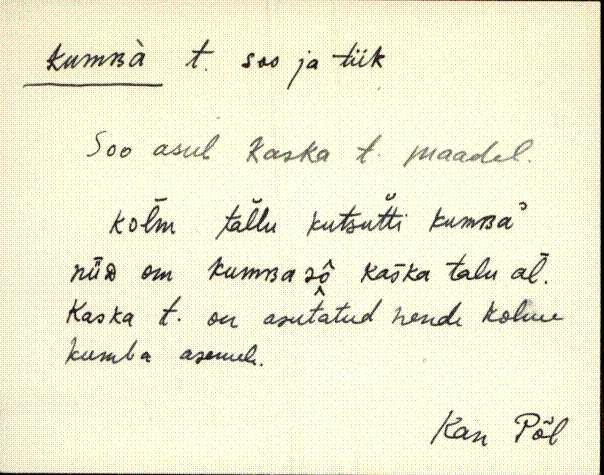 kumʙà t. soo ja tiik
Soo asub Kaska t. maadel.
kolm tallu kutsutti kumʙaˀ
niiᴅ om kumʙa sô kaska talu al.
Kaska t. on asutatud nende kolme
kumba asemele.
Kan Põl